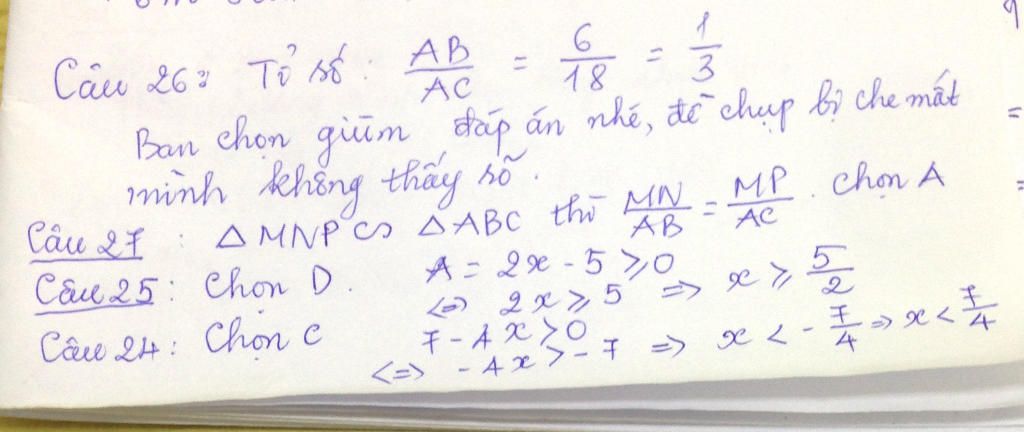 Câu 26: Tỉ số: AB/AC = 6/18 = 1/3
Bạn chọn giùm đáp án nhé, đề chụp bị che mất
mình không thấy rõ.
Câu 27: △MNP ∽ △ABC thì MN/AB = MP/AC. Chọn A
Câu 25: Chọn D. A = 2x - 5 ≥ 0
<=> 2x ≥ 5 => x ≥ 5/2
Câu 24: Chọn C 7 - 4x > 0
<=> -4x > -7 => x < -7/4 => x < 7/4